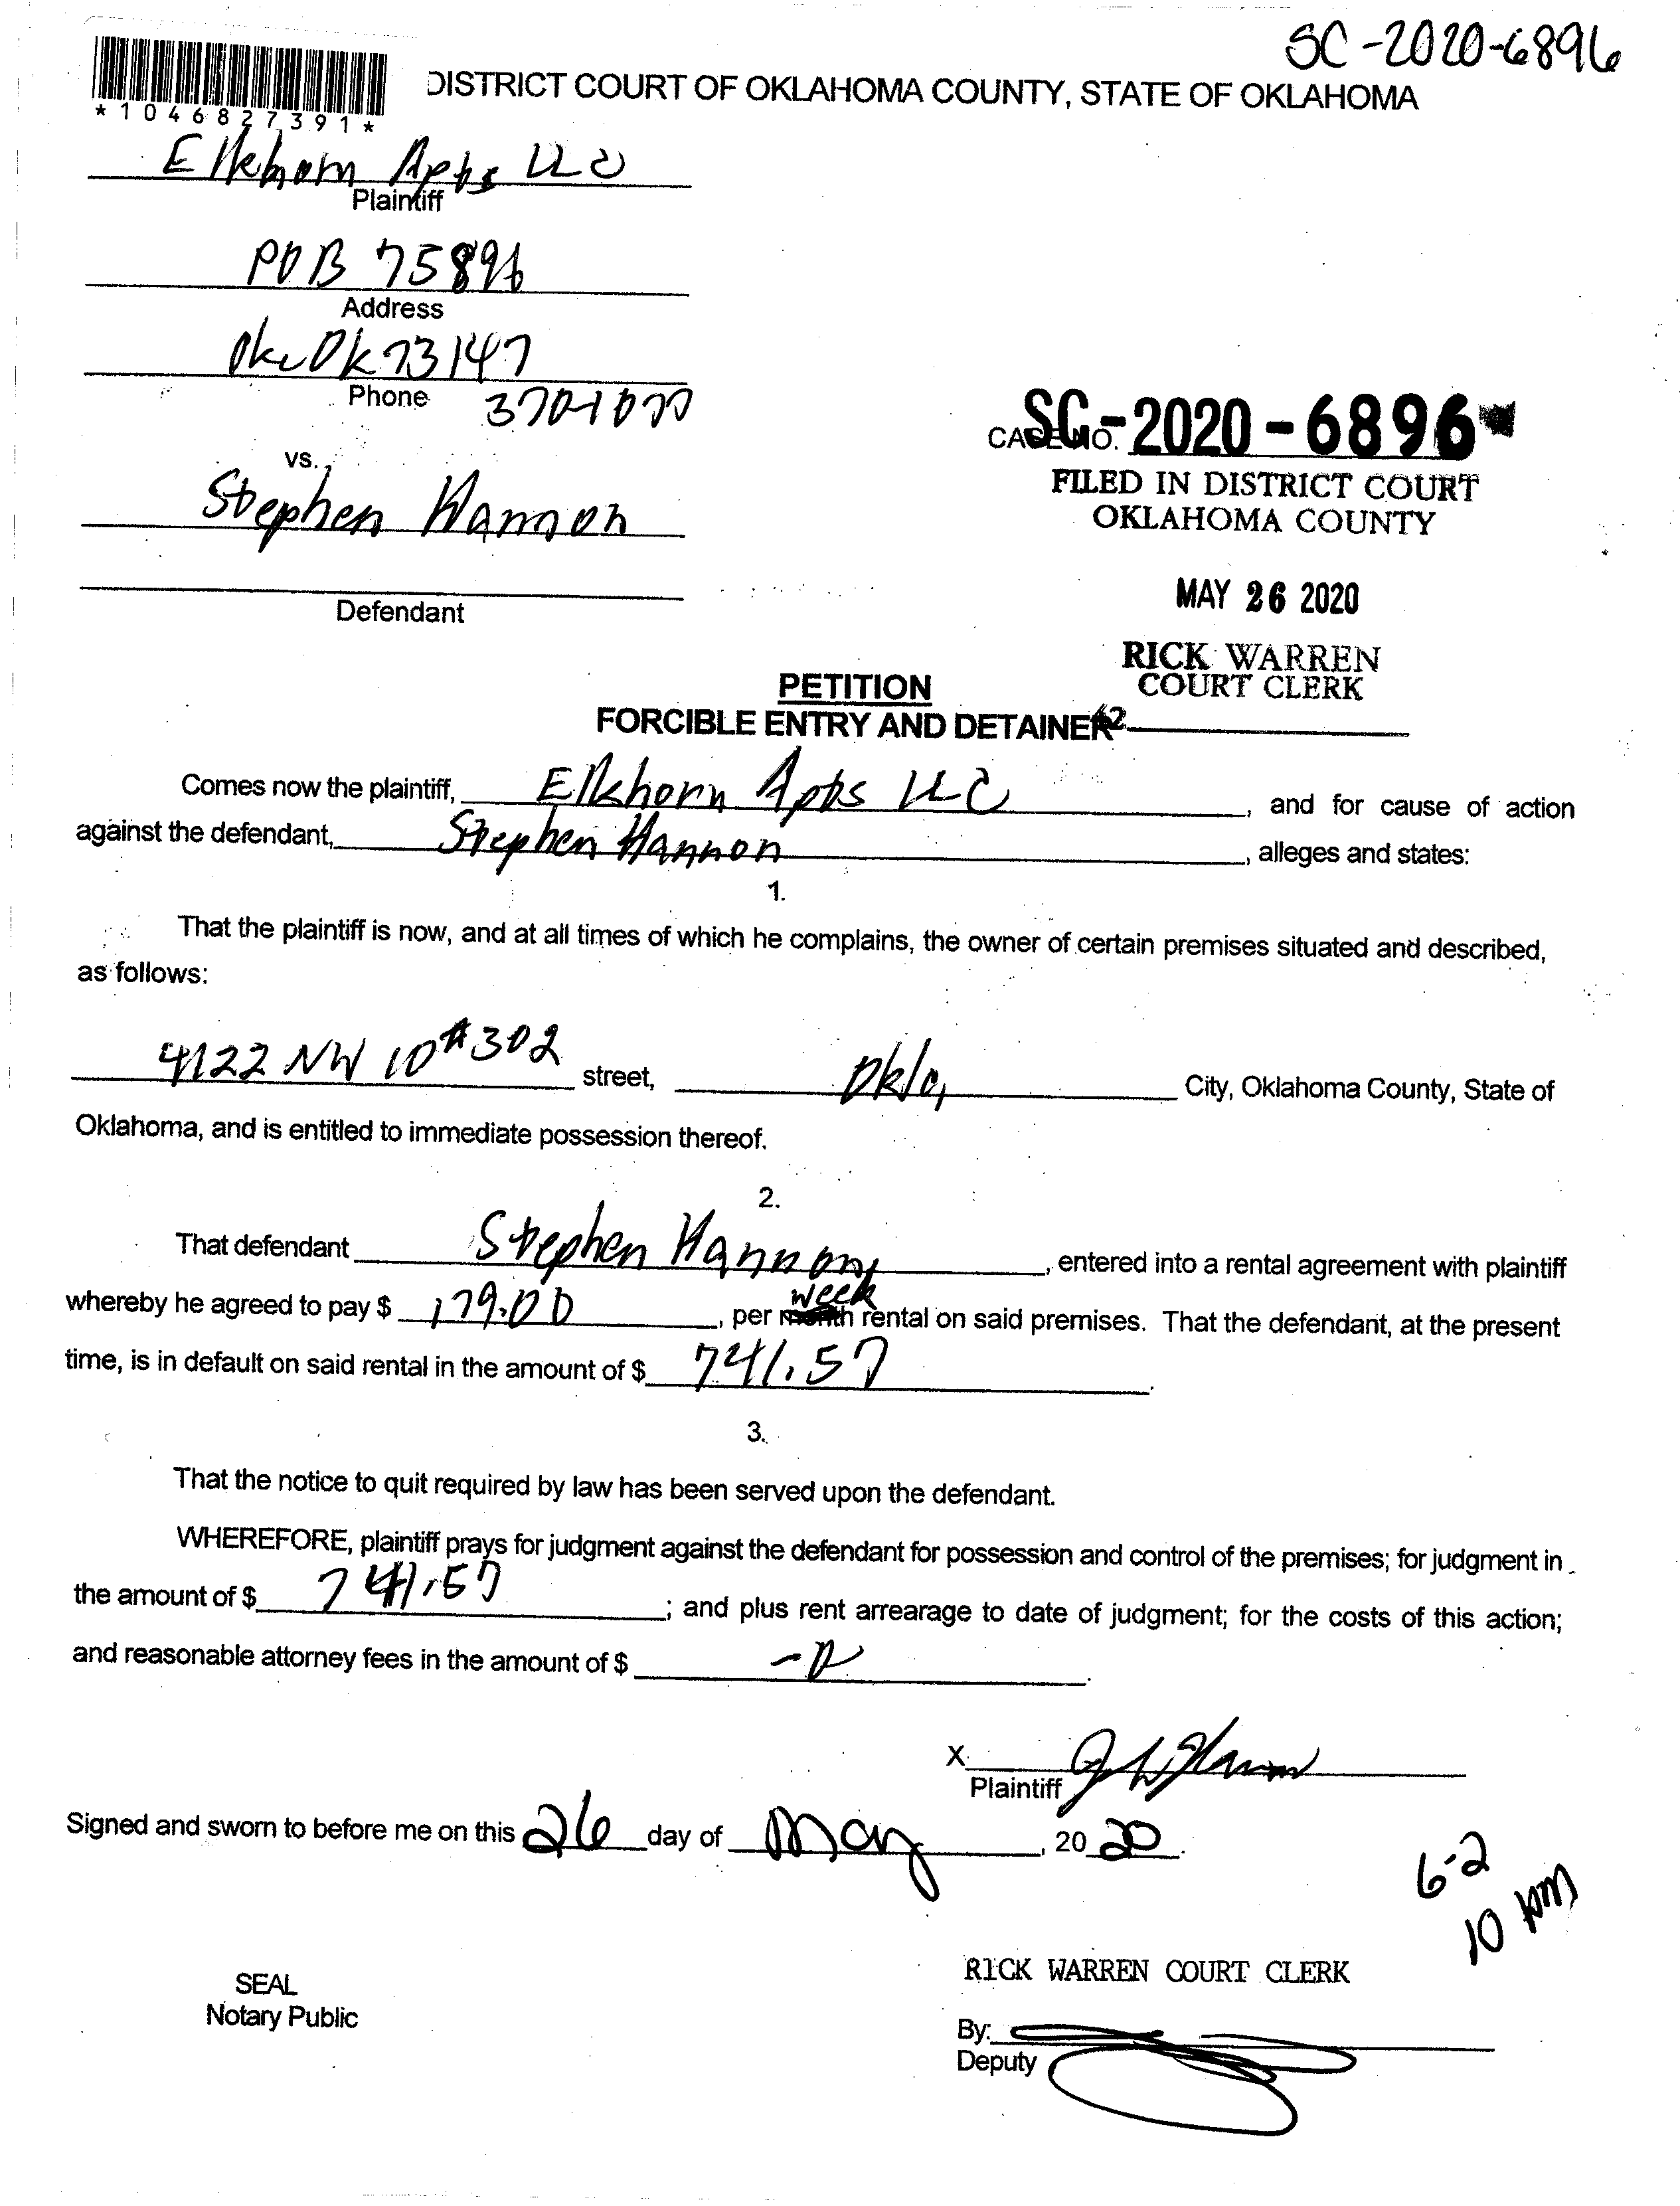 SC-2020-6896
*1046827391*
DISTRICT COURT OF OKLAHOMA COUNTY, STATE OF OKLAHOMA
Elkhorn Apts LLC
Plaintiff
POB 75896
Address
Okc Ok 73147
Phone 370-1077
vs.
Stephen Hannon
Defendant
CASE NO. SC-2020-6896
FILED IN DISTRICT COURT
OKLAHOMA COUNTY
MAY 26 2020
RICK WARREN
COURT CLERK
PETITION
FORCIBLE ENTRY AND DETAINER
Comes now the plaintiff, Elkhorn Apts LLC, and for cause of action
against the defendant, Stephen Hannon, alleges and states:
1.
That the plaintiff is now, and at all times of which he complains, the owner of certain premises situated and described,
as follows:
4122 NW 10 #302 street, Okla, City, Oklahoma County, State of
Oklahoma, and is entitled to immediate possession thereof.
2.
That defendant Stephen Hannon, entered into a rental agreement with plaintiff
week
whereby he agreed to pay $ 179.00, per month rental on said premises. That the defendant, at the present
time, is in default on said rental in the amount of $ 741.57.
3.
That the notice to quit required by law has been served upon the defendant.
WHEREFORE, plaintiff prays for judgment against the defendant for possession and control of the premises; for judgment in
the amount of $ 741.57; and plus rent arrearage to date of judgment; for the costs of this action;
and reasonable attorney fees in the amount of $
X
Plaintiff
Signed and sworn to before me on this 26 day of May, 20 20.
6-2
10 AM
SEAL
Notary Public
RICK WARREN COURT CLERK
By:
Deputy